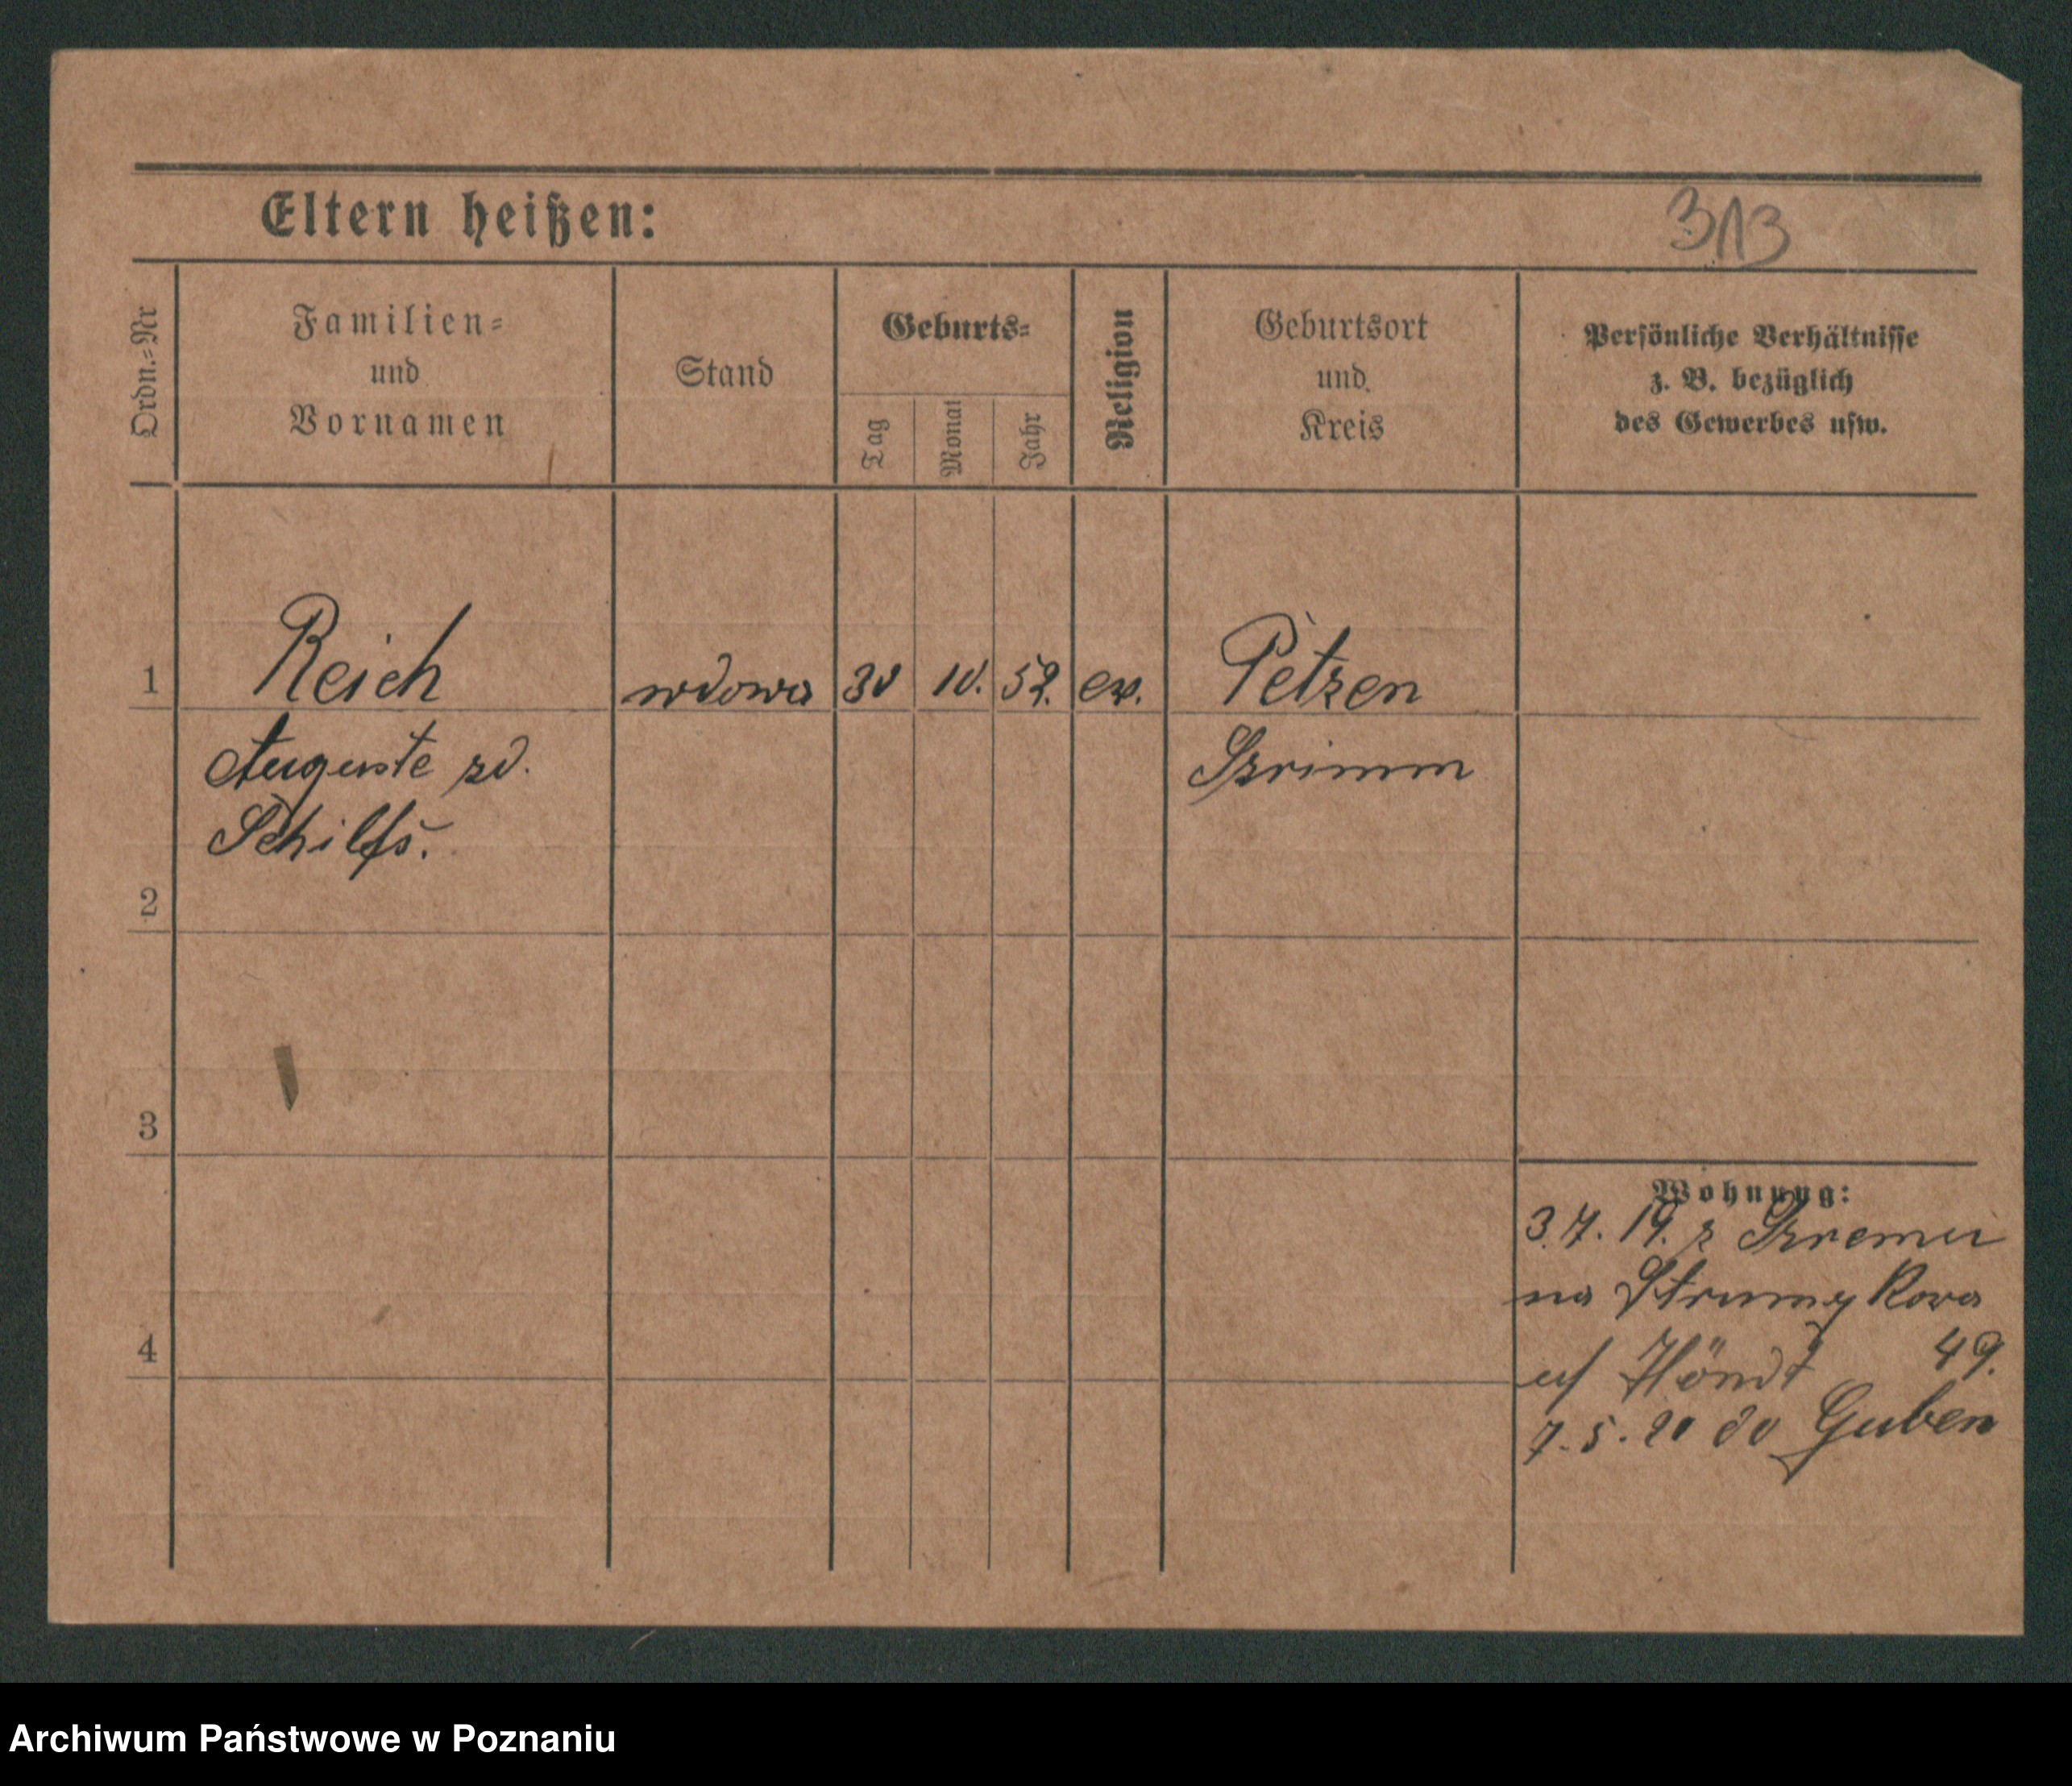 Eltern heißen:
313
Ordn.=Nr
Familien=
und
Vornamen
Stand
Geburts=
Tag
Monat
Jahr
Religion
Geburtsort
und
Kreis
Persönliche Verhältnisse
z. B. bezüglich
des Gewerbes usw.
1 Reich wdowa 30 10. 52. ew. Petzen
Auguste zd. Szrimm
Schilfs.
2
3
4
Wohnung:
3.7.19. z Szremu
na Strumykowa
49.
u/ Höndt
7.5.20 do Guben
Archiwum Państwowe w Poznaniu